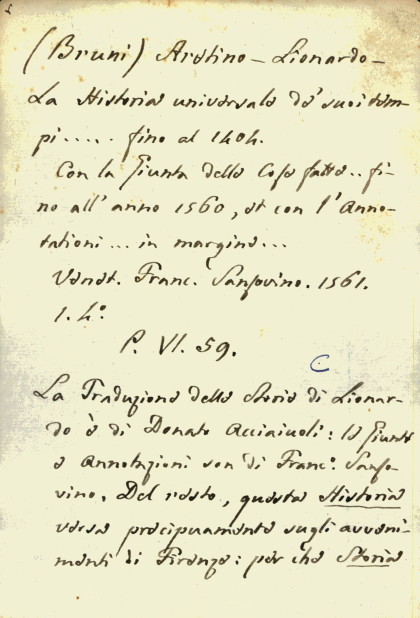 (Bruni) Aretino – Lionardo –
La Historia universale de' suoi tem-
pi ..... fino al 1404.
Con la Giunta delle Cose fatte.. fi-
no all' anno 1560, et con l' Anno-
tationi ... in margine ...
Venet. Franc. Sansovino. 1561.
1. 4.º
P. VI. 59.
C
La Traduzione della Storia di Lionar-
do è di Donato Acciaiuoli: le Giunte
e Annotazioni son di Franc.º Sanso-
vino. Del resto, questa Historia
versa precipuamente sugli avveni-
menti di Firenze: per che Storia